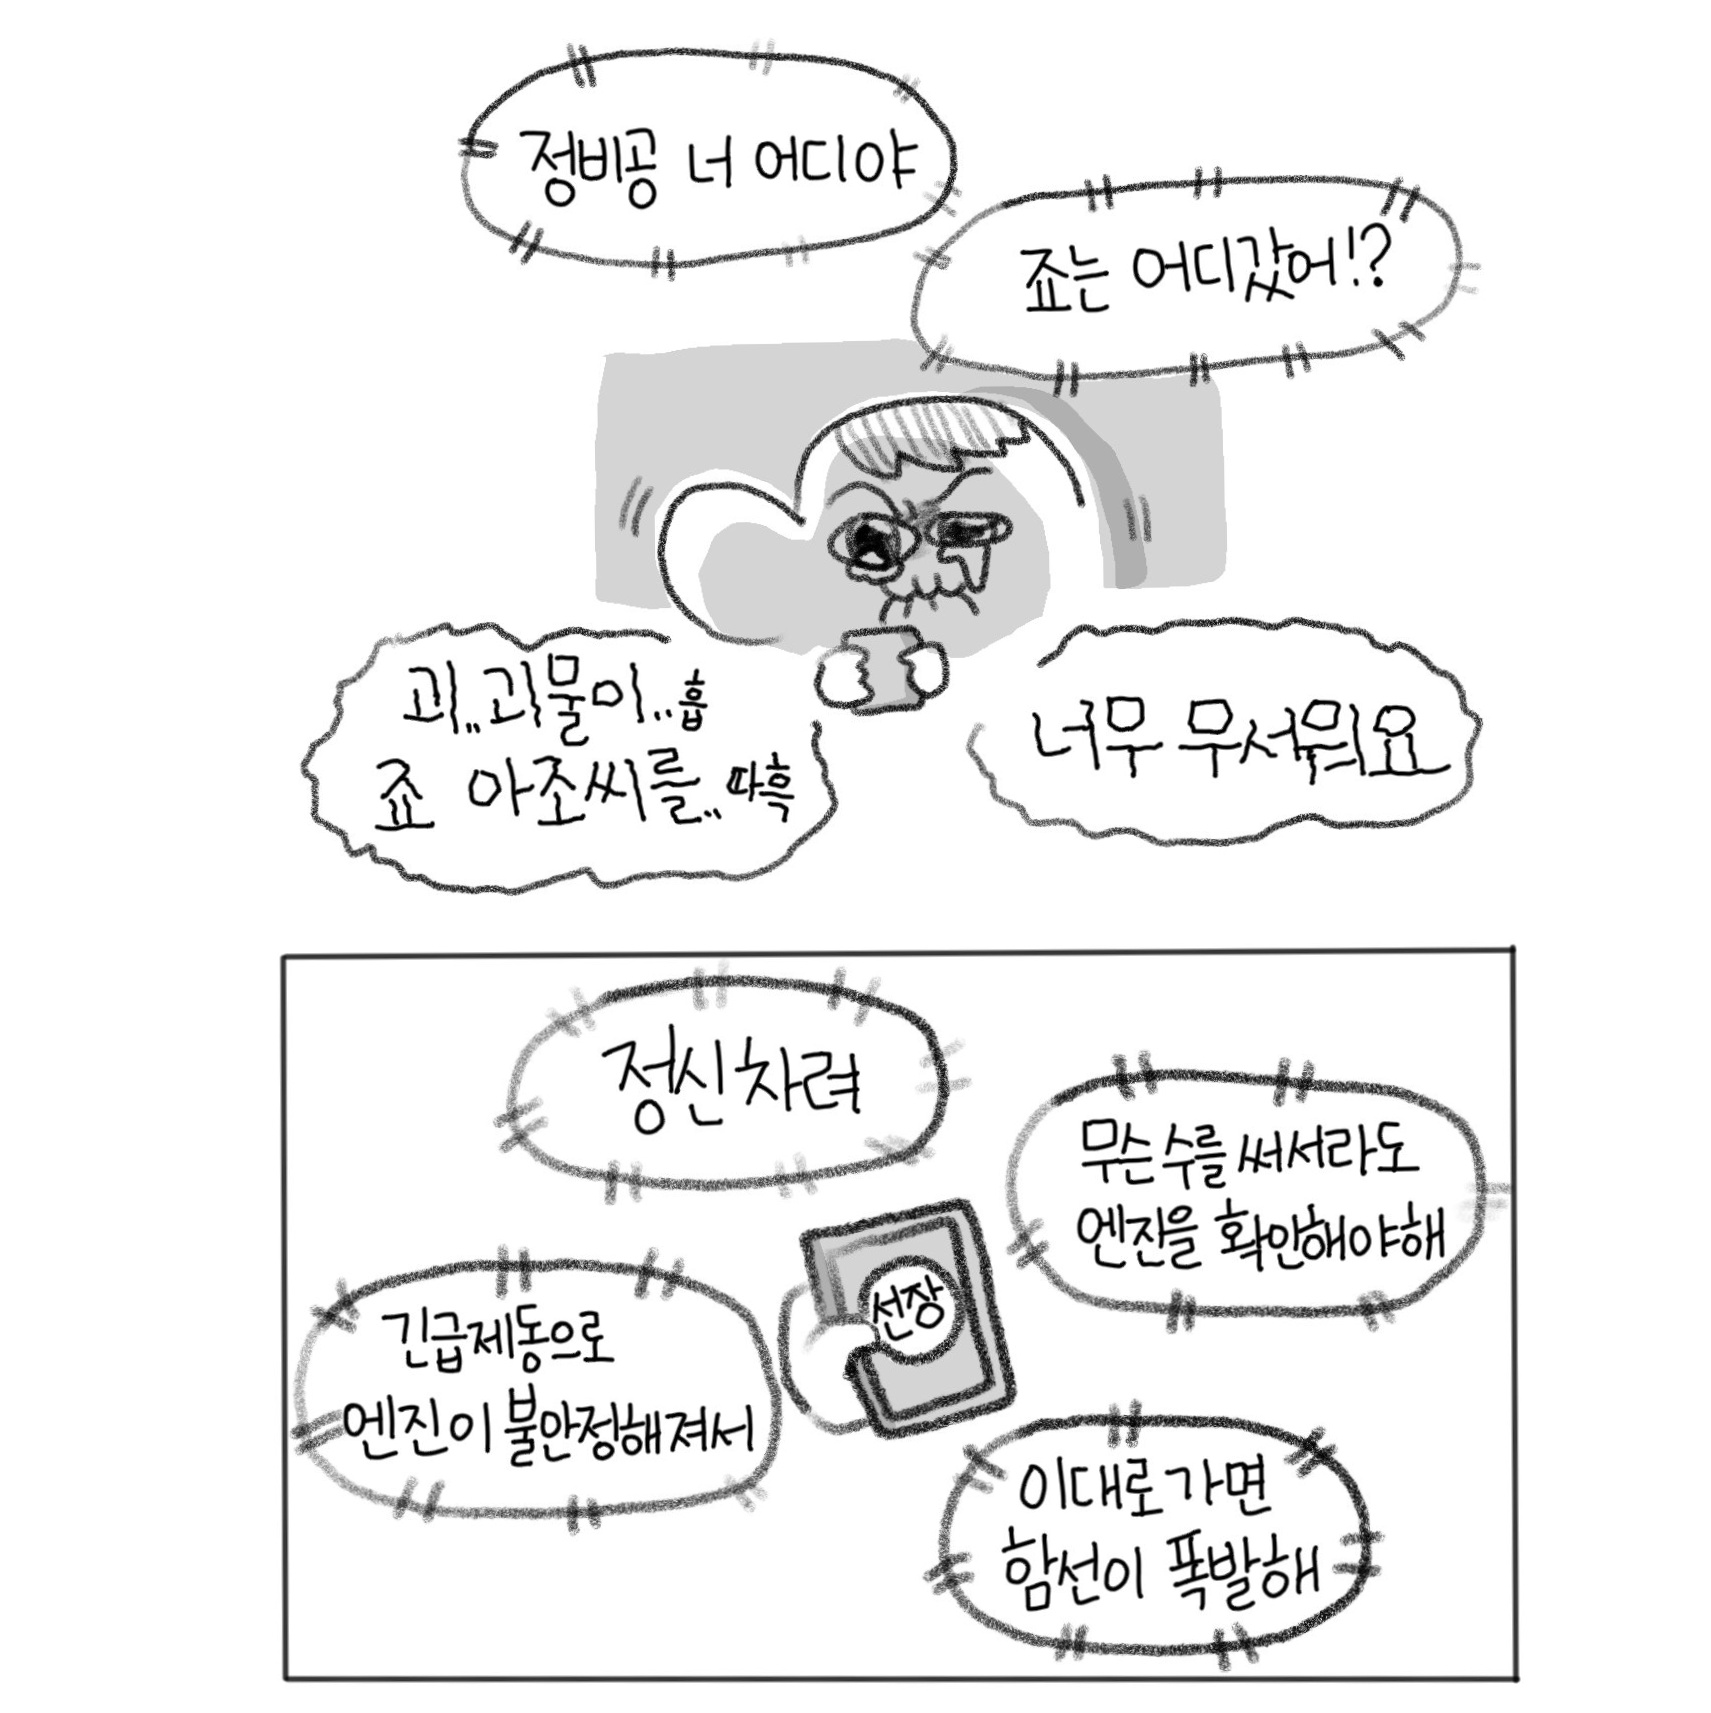 정비공 너 어디야
죠는 어디갔어!?
괴..괴물이..흡
죠 아조씨를..따흑
너무 무서워요
정신차려
무슨수를 써서라도
엔진을 확인해야해
선장
긴급제동으로
엔진이 불안정해져서
이대로가면
함선이 폭발해